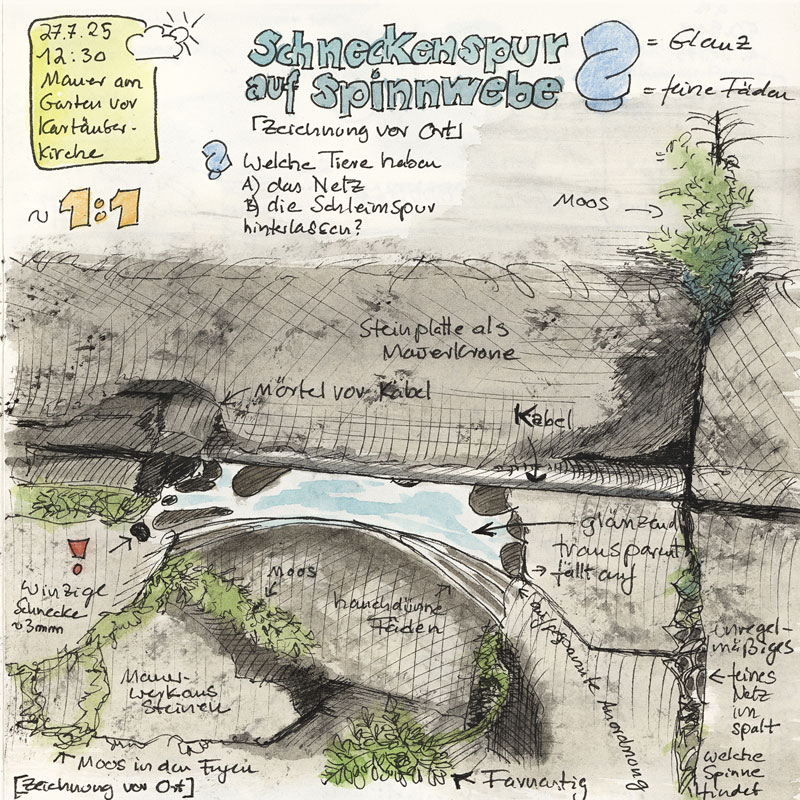 27.7.25
12:30
Mauer am
Garten vor
Kartäuser-
kirche
Schneckenspur
auf Spinnwebe
[Zeichnung vor Ort]
? = Glanz
= feine Fäden
? Welche Tiere haben
A) das Netz
B) die Schleimspur
hinterlassen?
~ 1:1
Moos
Steinplatte als
Mauerkrone
Mörtel vor Kabel
Kabel
glänzend
transparent
fällt auf
!
winzige
Schnecke
~3mm
Moos
hauchdünne
Fäden
aufgespannte Anordnung
unregel-
mäßiges
feines
Netz
im
Spalt
welche
Spinne
findet
Mauer-
werk aus
Steinen
Moos in den Fugen
[Zeichnung vor Ort]
Farnartig